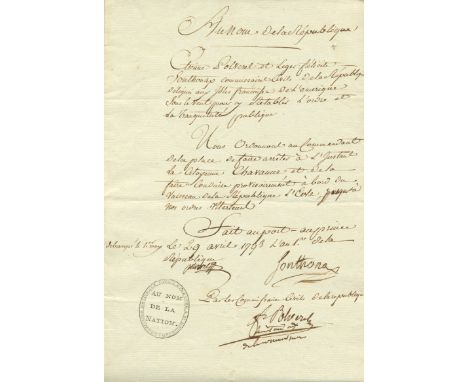 Au nom de la République
Etienne Polverel et Leger félicité
Sonthonax commissaires Civils de la République
délégués aux isles françaises de L'amerique
Sous le Vent pour y Rétablir L'ordre et
la tranquilité publique.
Nous Ordonnons au Commandant
de la place de faire arrêter à L'Instant
la Citoyenne Chavanne et de la
faire Conduire provisoirement à bord du
Vaisseau de la République L'Eole jusqu'à
nos ordres Ultérieurs
Fait au port-au-prince
Le 29 avril 1793 L'an 2e de la
République
Sonthonax
Par les Commissaires Civils de la république
AU NOM
DE LA
NATION.